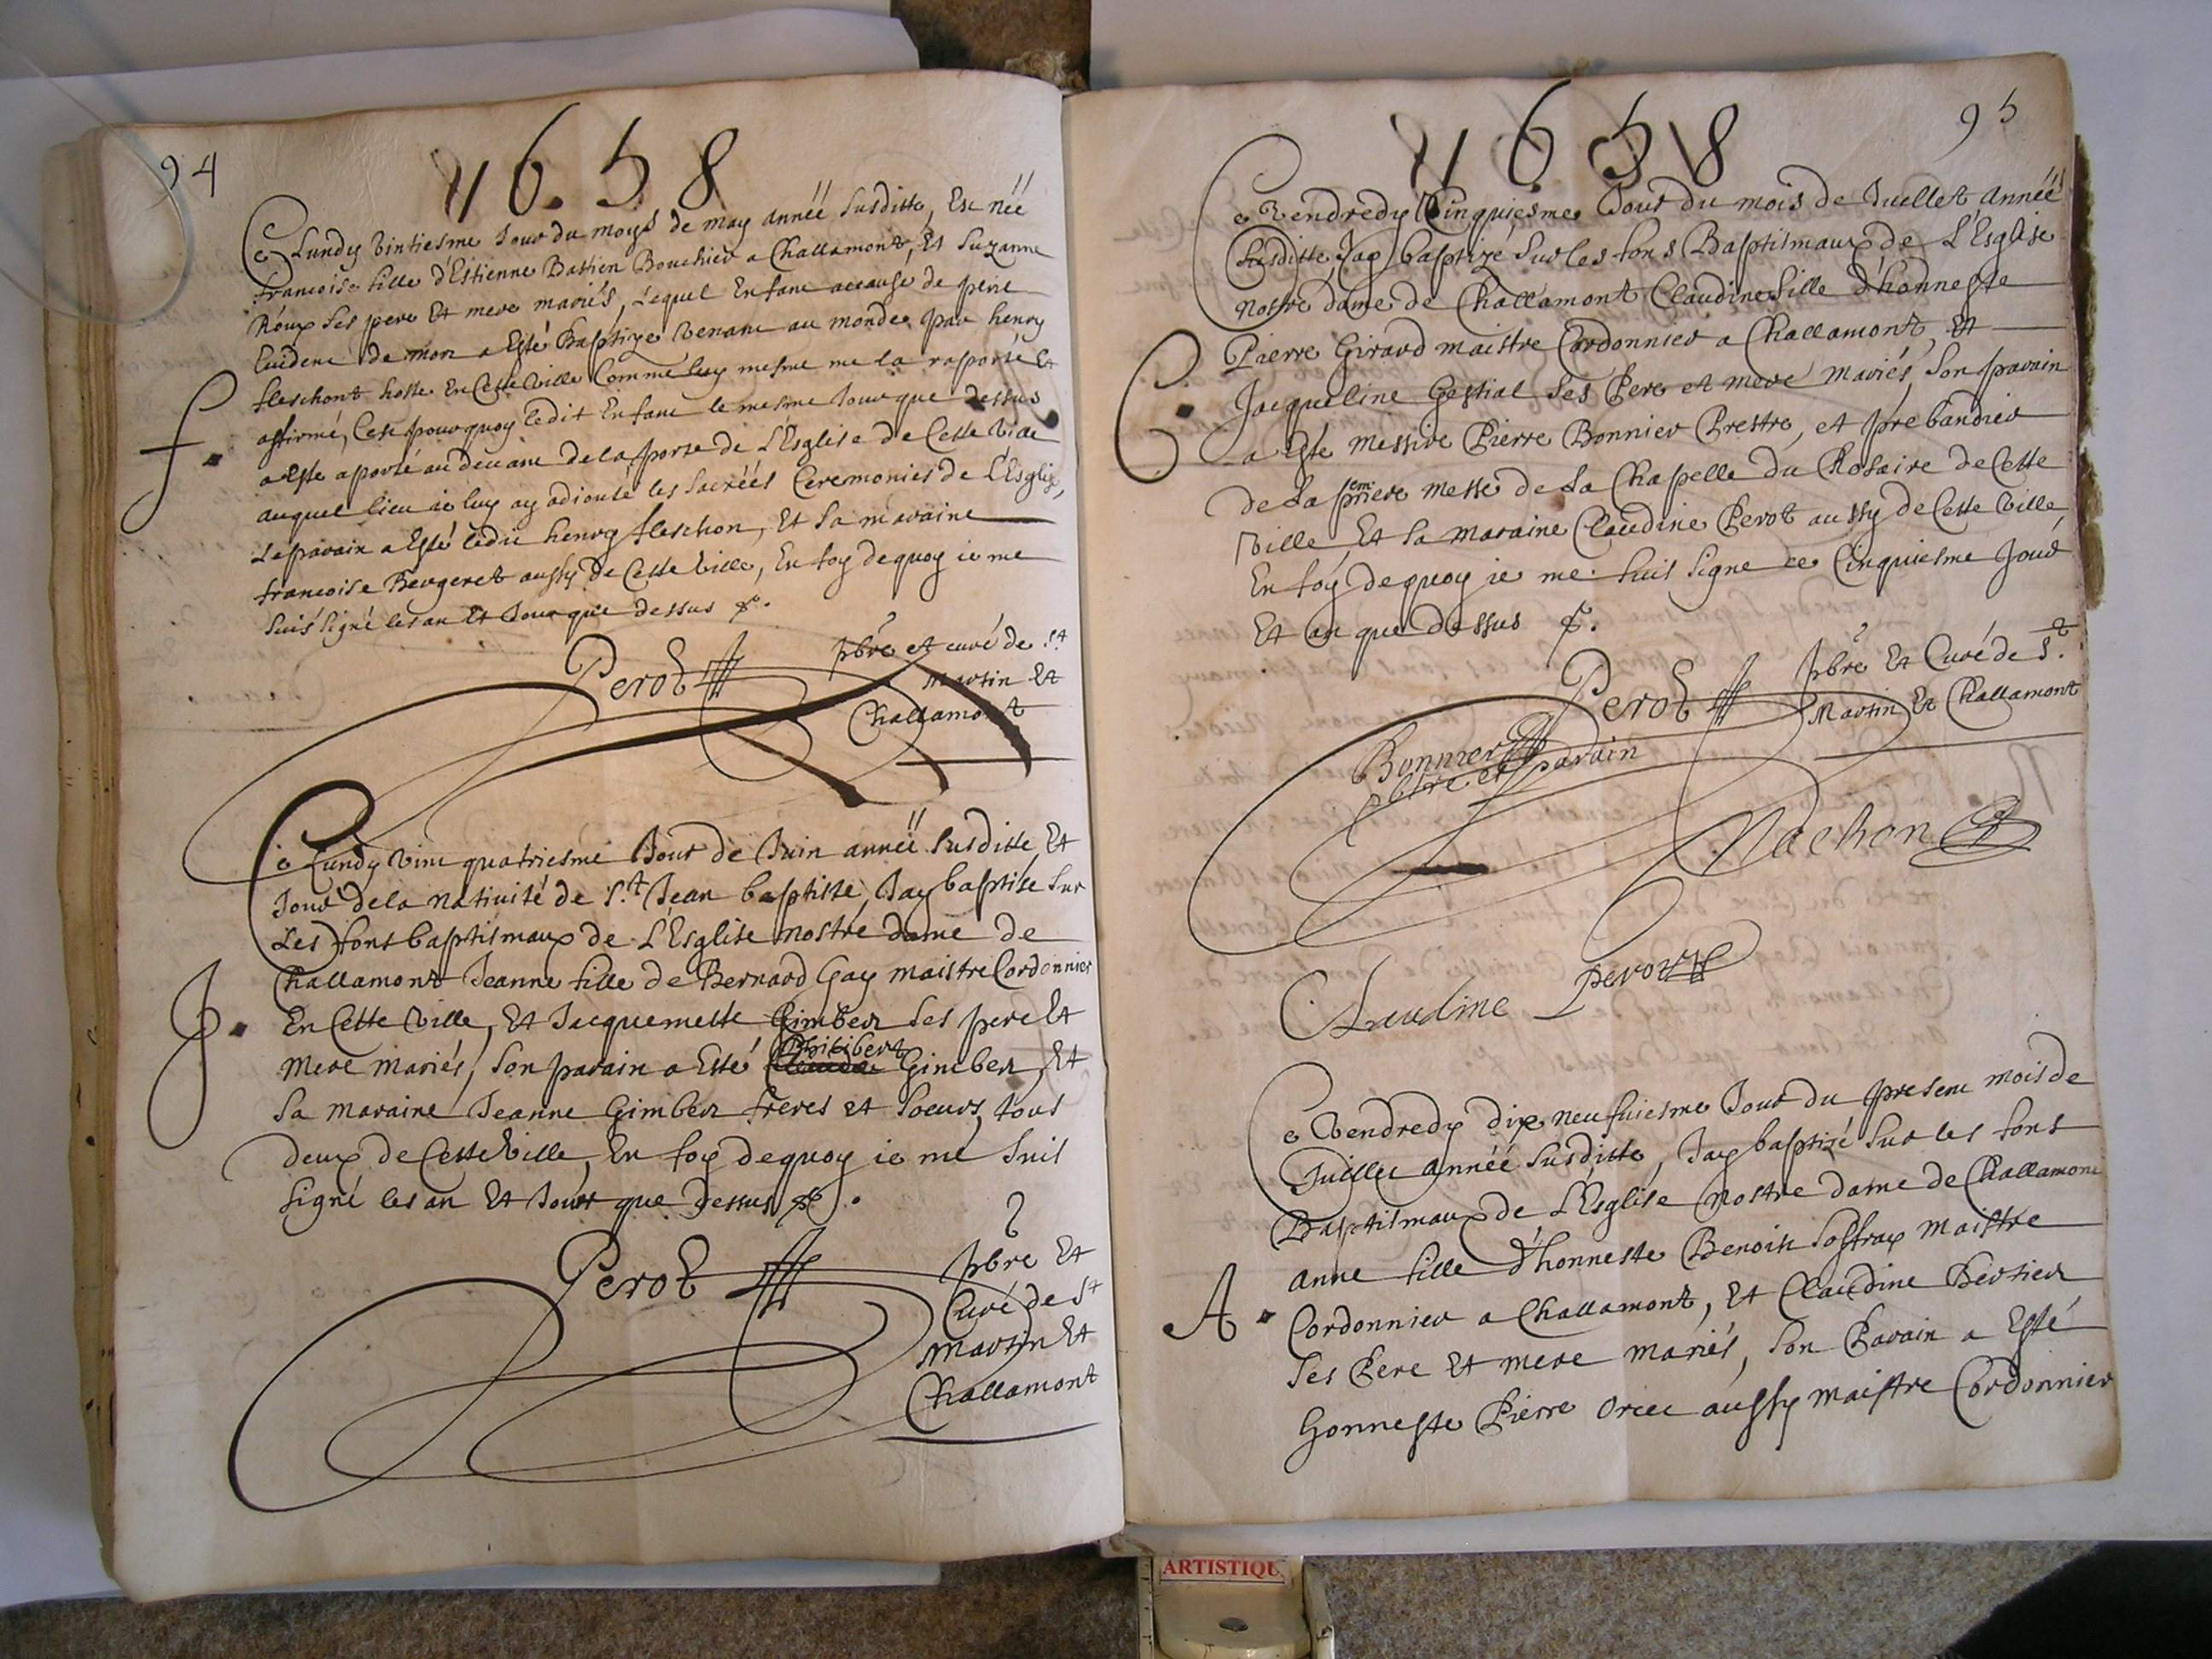 94
1658
Ce Lundy vintiesme Jour du moys de may année susditte, Est née
francoise fille d'Estienne Bastien Bouchier a Challamont, Et Suzanne
Roux ses pere Et mere mariés, Lequel Enfant accause de peril
Euident de mort a Esté Baptize venant au monde par henry
fleschont hoste En Cette Ville Comme luy mesme me la rasporté Et
affirmé, Cest pourquoy ledit Enfant le mesme Jour que dessus
a Este aporté au deuant de la porte de L'Esglise de Cette Ville
auquel lieu ie luy ay adiouté les sacréés Ceremonies de L'Esglise,
f.
Le parain a Esté ledit henry fleschon, Et sa maraine
francoise Bergeret aussy de Cette Ville, En foy dequoy ie me
suis signé les an Et Jour que dessus &.
Perot
pbre et curé de St
Martin Et
Challamont
Ce Lundy vint quatriesme Jour de Juin année susditte, Et
Jour de la natiuité de St Jean baptiste, Jay baptise sur
Les fons baptismaux de L'Esglise nostre dame de
Challamont Jeanne fille de Bernard Gay maistre Cordonnier
J.
En Cette Ville, Et Jacquemette Gimbert ses pere Et
Mere mariés, Son parain a Esté Philibert Gimbert, Et
sa maraine Jeanne Gimbert freres et soeurs, tous
deux de Cette Ville, En foy dequoy ie me suis
signé les an Et Jour que dessus &.
Perot
pbre Et
Curé de St
Martin Et
Challamont
95
1658
Ce Vendredy Cinquiesme Jour du mois de Juellet année
susditte, Jay baptizé sur les fons Baptismaux de L'Esglise
notre dame de Challamont Claudine fille d'honneste
Pierre Girard maistre Cordonnier a Challamont, Et
C.
Jacqueline Gestial ses Pere et mere mariés, Son parain
a Este Messire Pierre Bonnier Prestre, et prebandier
de la premiere Messe de La Chapelle du Rosaire de Cette
Ville, Et sa maraine Claudine Perot aussy de Cette Ville,
En foy dequoy ie me suis signe ce Cinquiesme Jour
Et an que dessus &.
Perot
pbre Et Curé de St
Martin Et Challamont
Bonnier
pbtre et parain
Nachon
Claudine perot
Ce Vendredy dix neufuiesme Jour du present mois de
Juillet année susditte, Jay baptizé sur les fons
Baptismaux de L'Esglise nostre dame de Challamont
anne fille d'honneste Benoist soffray Maistre
A.
Cordonnier a Challamont, Et Claudine Bertier
ses Pere Et mere mariés, Son Parain a Esté
honneste Pierre orcet aussy maistre Cordonnier
ARTISTIQU